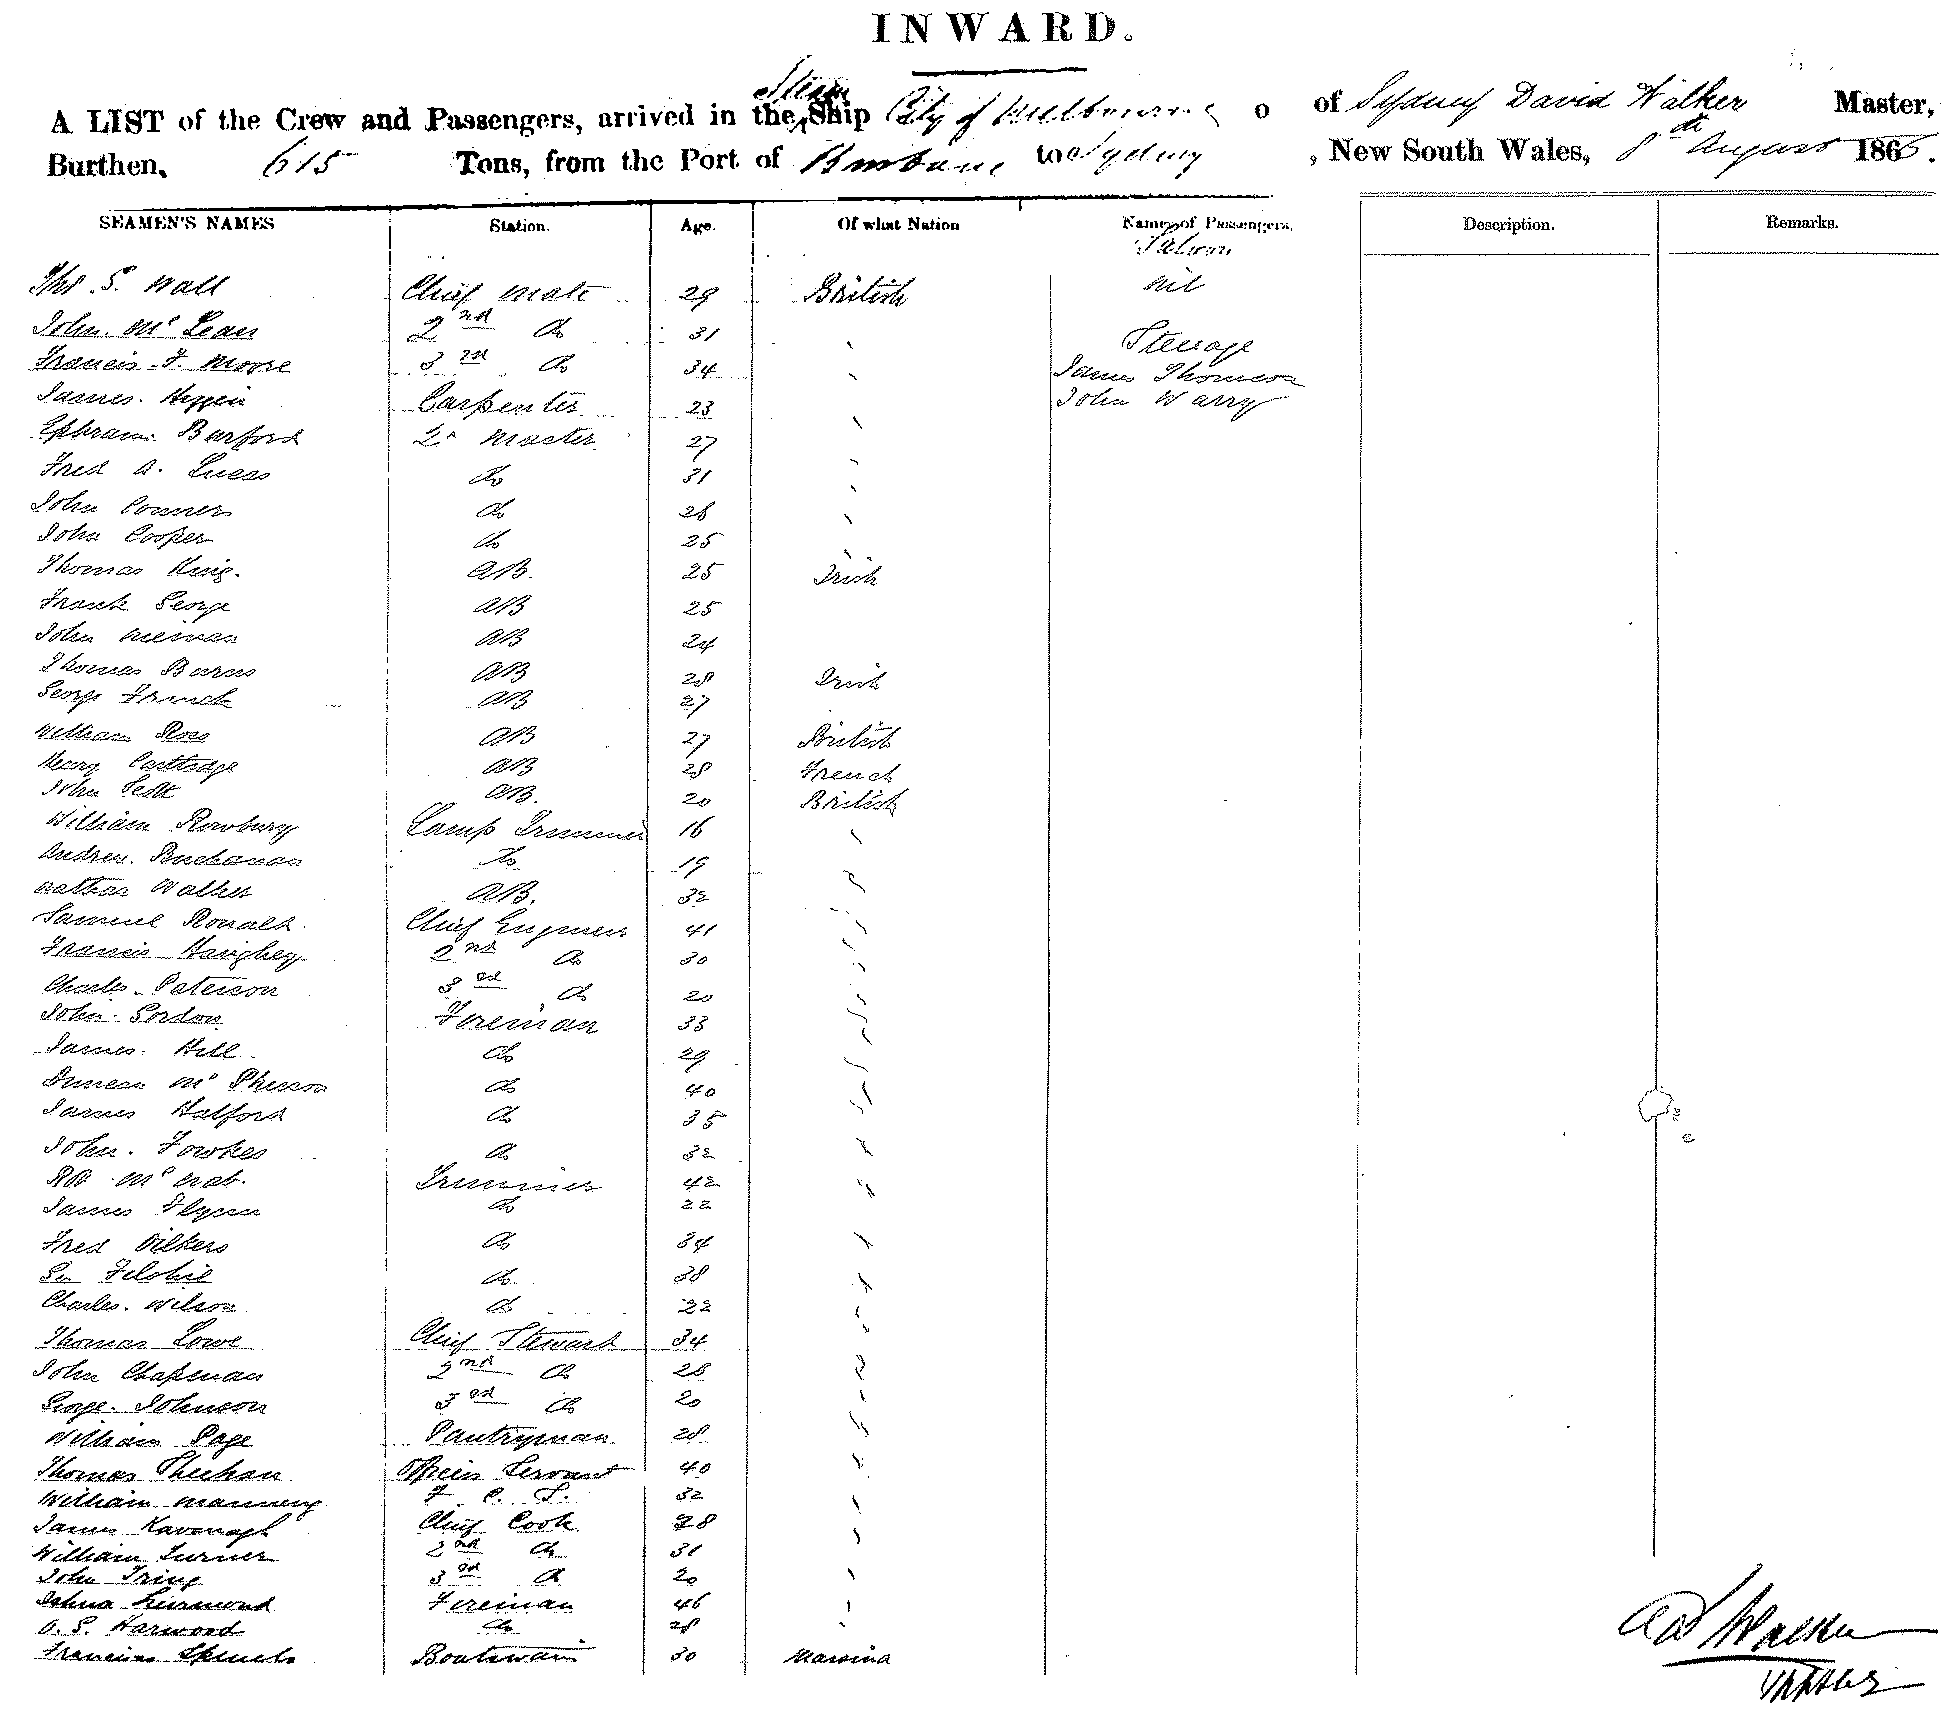 INWARD.
A LIST of the Crew and Passengers, arrived in the Steam Ship City of Melbourne of Sydney David Walker Master,
Burthen, 615 Tons, from the Port of Brisbane to Sydney , New South Wales, 8th August 1866.
SEAMEN'S NAMES Station. Age. Of what Nation Names of Passengers. Description. Remarks.
Saloon
Thos S. Wall Chief Mate 29 British nil
John Mc Lean 2nd do 31
Steerage
Francis F. Moore 3rd do 34 James Thomson
James Carpenter 23 John Warry
Ephraim Barford Qr Master 27
Fred A. Lucas do 31
John Conners do 26
John Cooper do 25
Thomas King AB. 25 Irish
Frank George AB 25
John AB 24
Thomas Burns AB 28 Irish
George French AB 27
William Ross AB 27 British
Henry Carttadge AB 28 French
John Scott AB. 20 British
William Rowbury Lamp Trimmer 16
Andrew Buchanan do 19
Nathan Walker AB. 32
Samuel Ronald Chief Engineer 41
Francis Haughey 2nd do 30
Charles Paterson 3rd do 20
John Gordon Fireman 33
James Hill do 29
Duncan Mc Pherson do 40
James Halford do 35
John Fowkes do 32
Mc Nab Trimmer 42
James Flynn do 22
Fred Vilkers do 34
do 38
Charles Wilson do 22
Thomas Lowe Chief Steward 34
John Chapman 2nd do 26
George Johnson 3rd do 20
William Page Pantryman 28
Thomas Sheehan Officers Servant 40
William Manning F. C. S. 32
James Kavanagh Chief Cook 28
William Turner 2nd do 31
John 3rd do 20
Fireman 46
Harwood do 28
Boatswain 30
Walker
Master